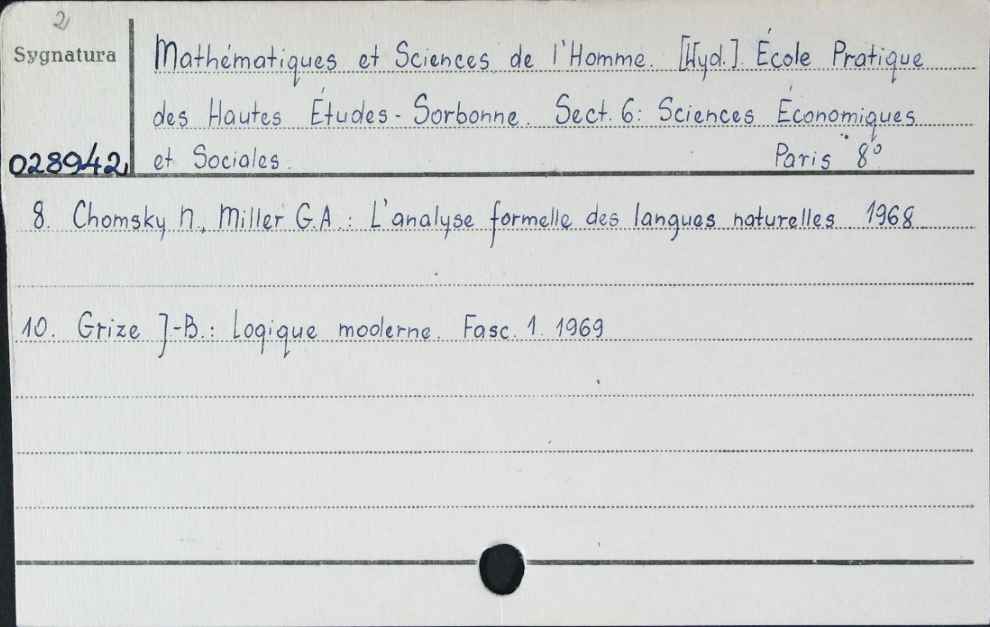 2
Sygnatura
028942
Mathématiques et Sciences de l'Homme. [Wyd.] École Pratique
des Hautes Études - Sorbonne. Sect. 6: Sciences Économiques
et Sociales. Paris 8°
8. Chomsky N., Miller G.A.: L'analyse formelle des langues naturelles 1968
10. Grize J-B.: Logique moderne. Fasc. 1. 1969